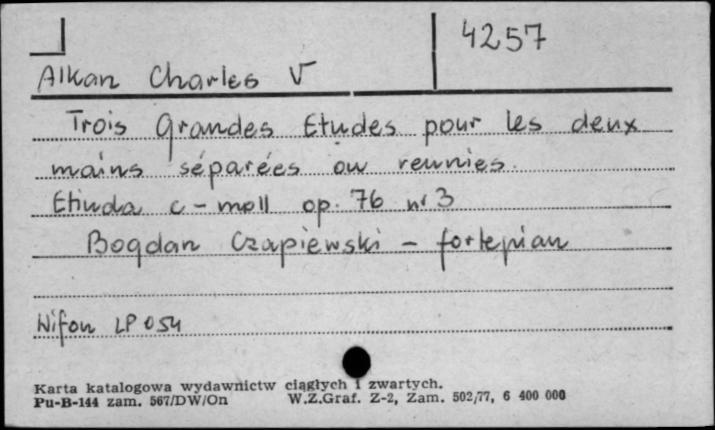 4257
Alkan Charles V
Trois Grandes Etudes pour les deux
mains séparées ou reunies.
Etiuda c-moll op. 76 nr 3
Bogdan Czapiewski - fortepian
Wifon LP 054
Karta katalogowa wydawnictw ciągłych i zwartych.
Pu-B-144 zam. 567/DW/On W.Z.Graf. Z-2, Zam. 502/77, 6 400 000